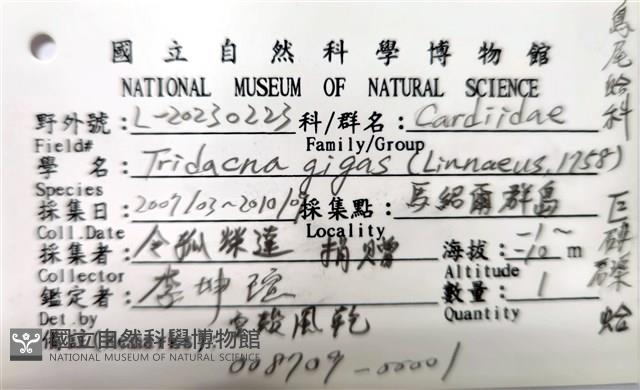 國立自然科學博物館
NATIONAL MUSEUM OF NATURAL SCIENCE
野外號：L-20230223 科/群名：Cardiidae
Field# Family/Group
學名：Tridacna gigas (Linnaeus, 1758)
Species
採集日：2009/03~2010/0 採集點：馬紹爾群島
Coll.Date Locality
採集者：令狐榮達 捐贈 海拔：-1~-10 m
Collector Altitude
鑑定者：李坤瑄 數量：1
Det.by Quantity
風乾
國立自然科學博物館
NATIONAL MUSEUM OF NATURAL SCIENCE
008709-00001
鳥尾蛤科
巨硨磲蛤